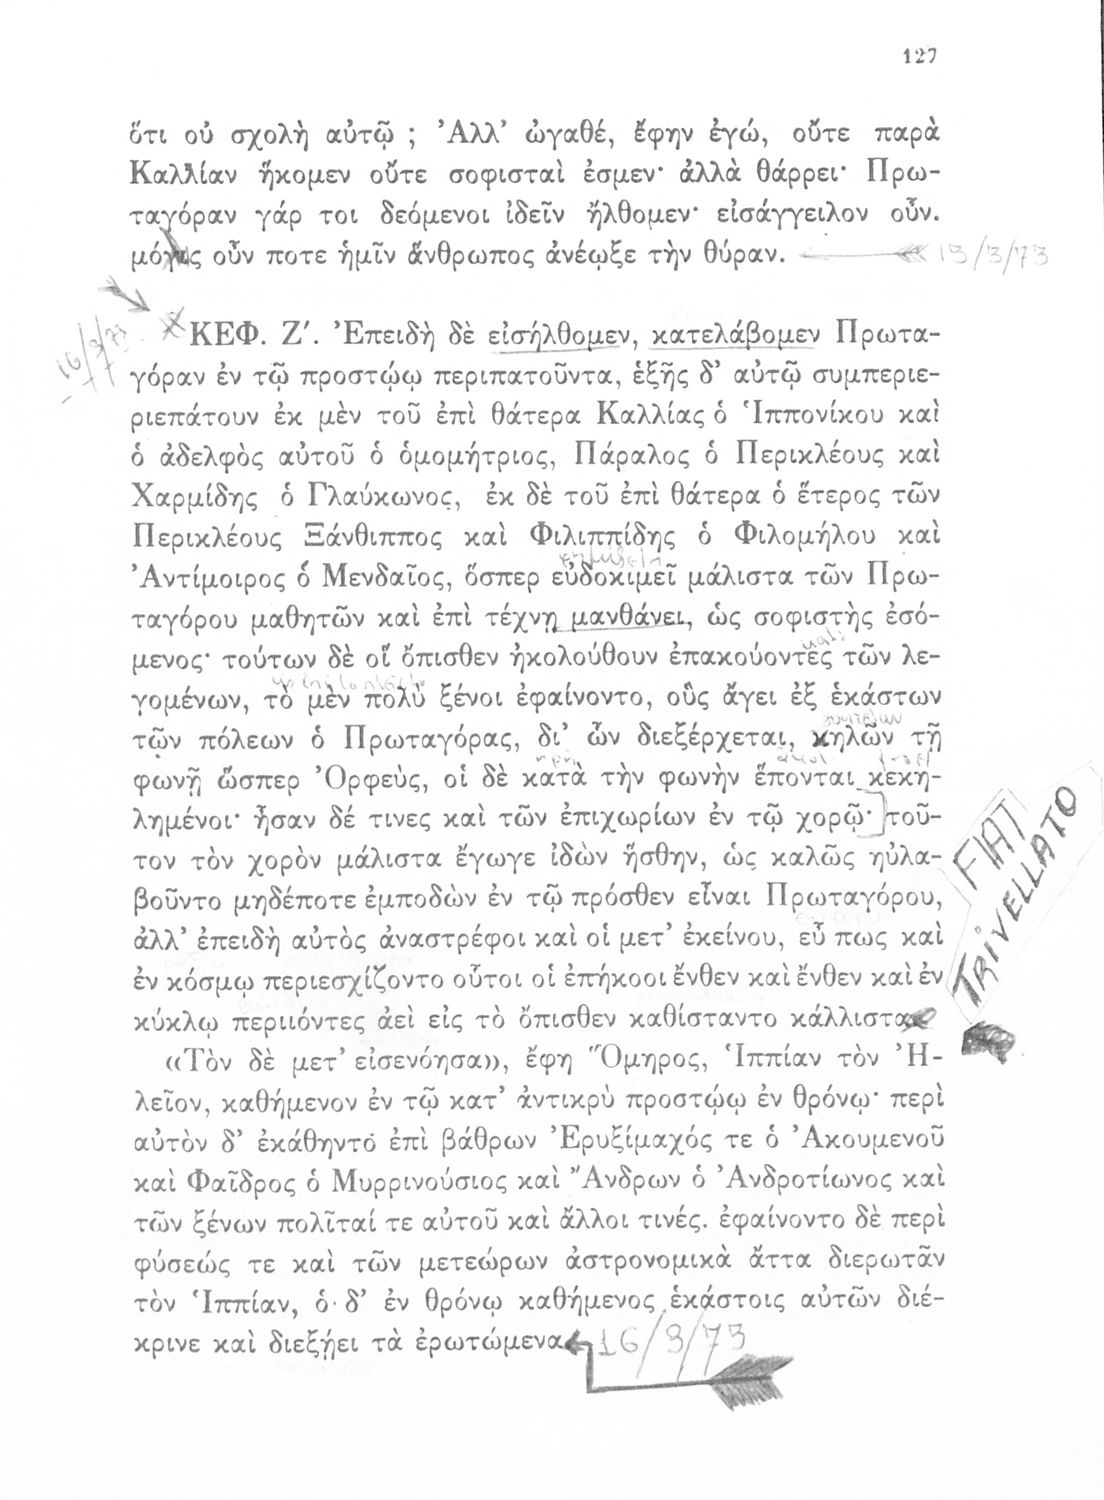 127
ὅτι οὐ σχολὴ αὐτῷ ; Ἀλλ' ὠγαθέ, ἔφην ἐγώ, οὔτε παρὰ
Καλλίαν ἥκομεν οὔτε σοφισταὶ ἐσμεν· ἀλλὰ θάρρει· Πρω-
ταγόραν γάρ τοι δεόμενοι ἰδεῖν ἤλθομεν· εἰσάγγειλον οὖν.
μόγις οὖν ποτε ἡμῖν ἅνθρωπος ἀνέῳξε τὴν θύραν. 15/3/73
16/3/73
ΚΕΦ. Ζ'. Ἐπειδὴ δὲ εἰσήλθομεν, κατελάβομεν Πρωτα-
γόραν ἐν τῷ προστῴῳ περιπατοῦντα, ἑξῆς δ' αὐτῷ συμπεριε-
ριεπάτουν ἐκ μὲν τοῦ ἐπὶ θάτερα Καλλίας ὁ Ἱππονίκου καὶ
ὁ ἀδελφὸς αὐτοῦ ὁ ὁμομήτριος, Πάραλος ὁ Περικλέους καὶ
Χαρμίδης ὁ Γλαύκωνος, ἐκ δὲ τοῦ ἐπὶ θάτερα ὁ ἕτερος τῶν
Περικλέους Ξάνθιππος καὶ Φιλιππίδης ὁ Φιλομήλου καὶ
Ἀντίμοιρος ὁ Μενδαῖος, ὅσπερ εὐδοκιμεῖ μάλιστα τῶν Πρω-
ταγόρου μαθητῶν καὶ ἐπὶ τέχνῃ μανθάνει, ὡς σοφιστὴς ἐσό-
μενος· τούτων δὲ οἳ ὄπισθεν ἠκολούθουν ἐπακούοντες τῶν λε-
γομένων, τὸ μὲν πολὺ ξένοι ἐφαίνοντο, οὓς ἄγει ἐξ ἑκάστων
τῶν πόλεων ὁ Πρωταγόρας, δι' ὧν διεξέρχεται, κηλῶν τῇ
φωνῇ ὥσπερ Ὀρφεὺς, οἱ δὲ κατὰ τὴν φωνὴν ἕπονται κεκη-
λημένοι· ἦσαν δέ τινες καὶ τῶν ἐπιχωρίων ἐν τῷ χορῷ· τοῦ-
τον τὸν χορὸν μάλιστα ἔγωγε ἰδὼν ἥσθην, ὡς καλῶς ηὐλα-
βοῦντο μηδέποτε ἐμποδὼν ἐν τῷ πρόσθεν εἶναι Πρωταγόρου,
ἀλλ' ἐπειδὴ αὐτὸς ἀναστρέφοι καὶ οἱ μετ' ἐκείνου, εὖ πως καὶ
ἐν κόσμῳ περιεσχίζοντο οὗτοι οἱ ἐπήκοοι ἔνθεν καὶ ἔνθεν καὶ ἐν
κύκλῳ περιιόντες ἀεὶ εἰς τὸ ὄπισθεν καθίσταντο κάλλιστα.
FIAT
TRIVELLATO
«Τὸν δὲ μετ' εἰσενόησα», ἔφη Ὅμηρος, Ἱππίαν τὸν Ἠ-
λεῖον, καθήμενον ἐν τῷ κατ' ἀντικρὺ προστῴῳ ἐν θρόνῳ· περὶ
αὐτὸν δ' ἐκάθηντο ἐπὶ βάθρων Ἐρυξίμαχός τε ὁ Ἀκουμενοῦ
καὶ Φαῖδρος ὁ Μυρρινούσιος καὶ Ἄνδρων ὁ Ἀνδροτίωνος καὶ
τῶν ξένων πολῖταί τε αὐτοῦ καὶ ἄλλοι τινές. ἐφαίνοντο δὲ περὶ
φύσεώς τε καὶ τῶν μετεώρων ἀστρονομικὰ ἄττα διερωτᾶν
τὸν Ἱππίαν, ὁ δ' ἐν θρόνῳ καθήμενος ἑκάστοις αὐτῶν διέ-
κρινε καὶ διεξῄει τὰ ἐρωτώμενα 16/3/73